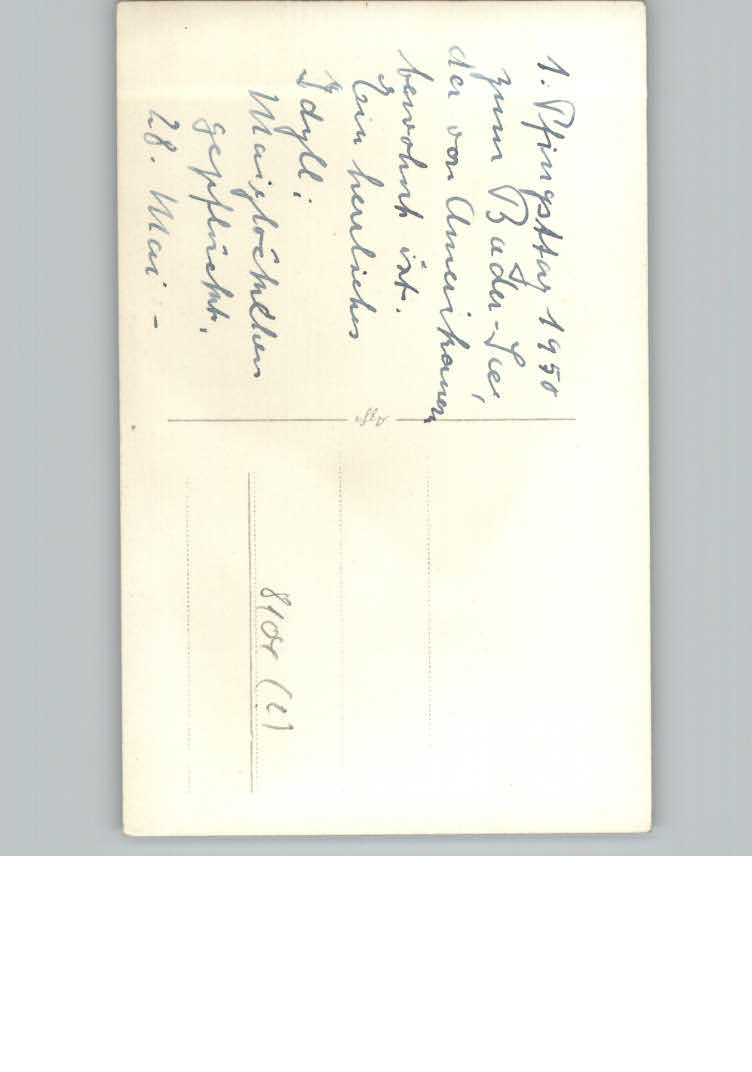 1. Pfingsttag 1950
zum Bader-See,
der von Amerikanern
bewohnt ist.
Ein herrliches
Idyll!
Maiglöckchen
gepflückt.
28. Mai -
Agfa